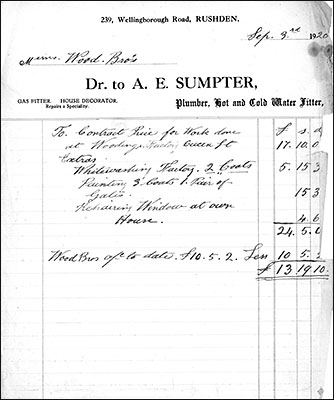 239, Wellingborough Road, RUSHDEN.
Sep. 3rd 1920
Messrs. Wood Bro's
Dr. to A. E. SUMPTER,
GAS FITTER. HOUSE DECORATOR.
Repairs a Speciality.
Plumber, Hot and Cold Water Fitter,
£ s. d
To Contract Price for Work done
at Factory Queen St 17. 10. 0
Extras
Whitewashing Factory. 2 Coats 5. 15 3
Painting 3 Coats 1 Pair of
Gates. 15 3
Repairing Window at own
House. 4. 6
24. 5. 0
Wood Bros a/c to date. £10. 5. 2. Less 10 5. 2
£ 13 19 10.